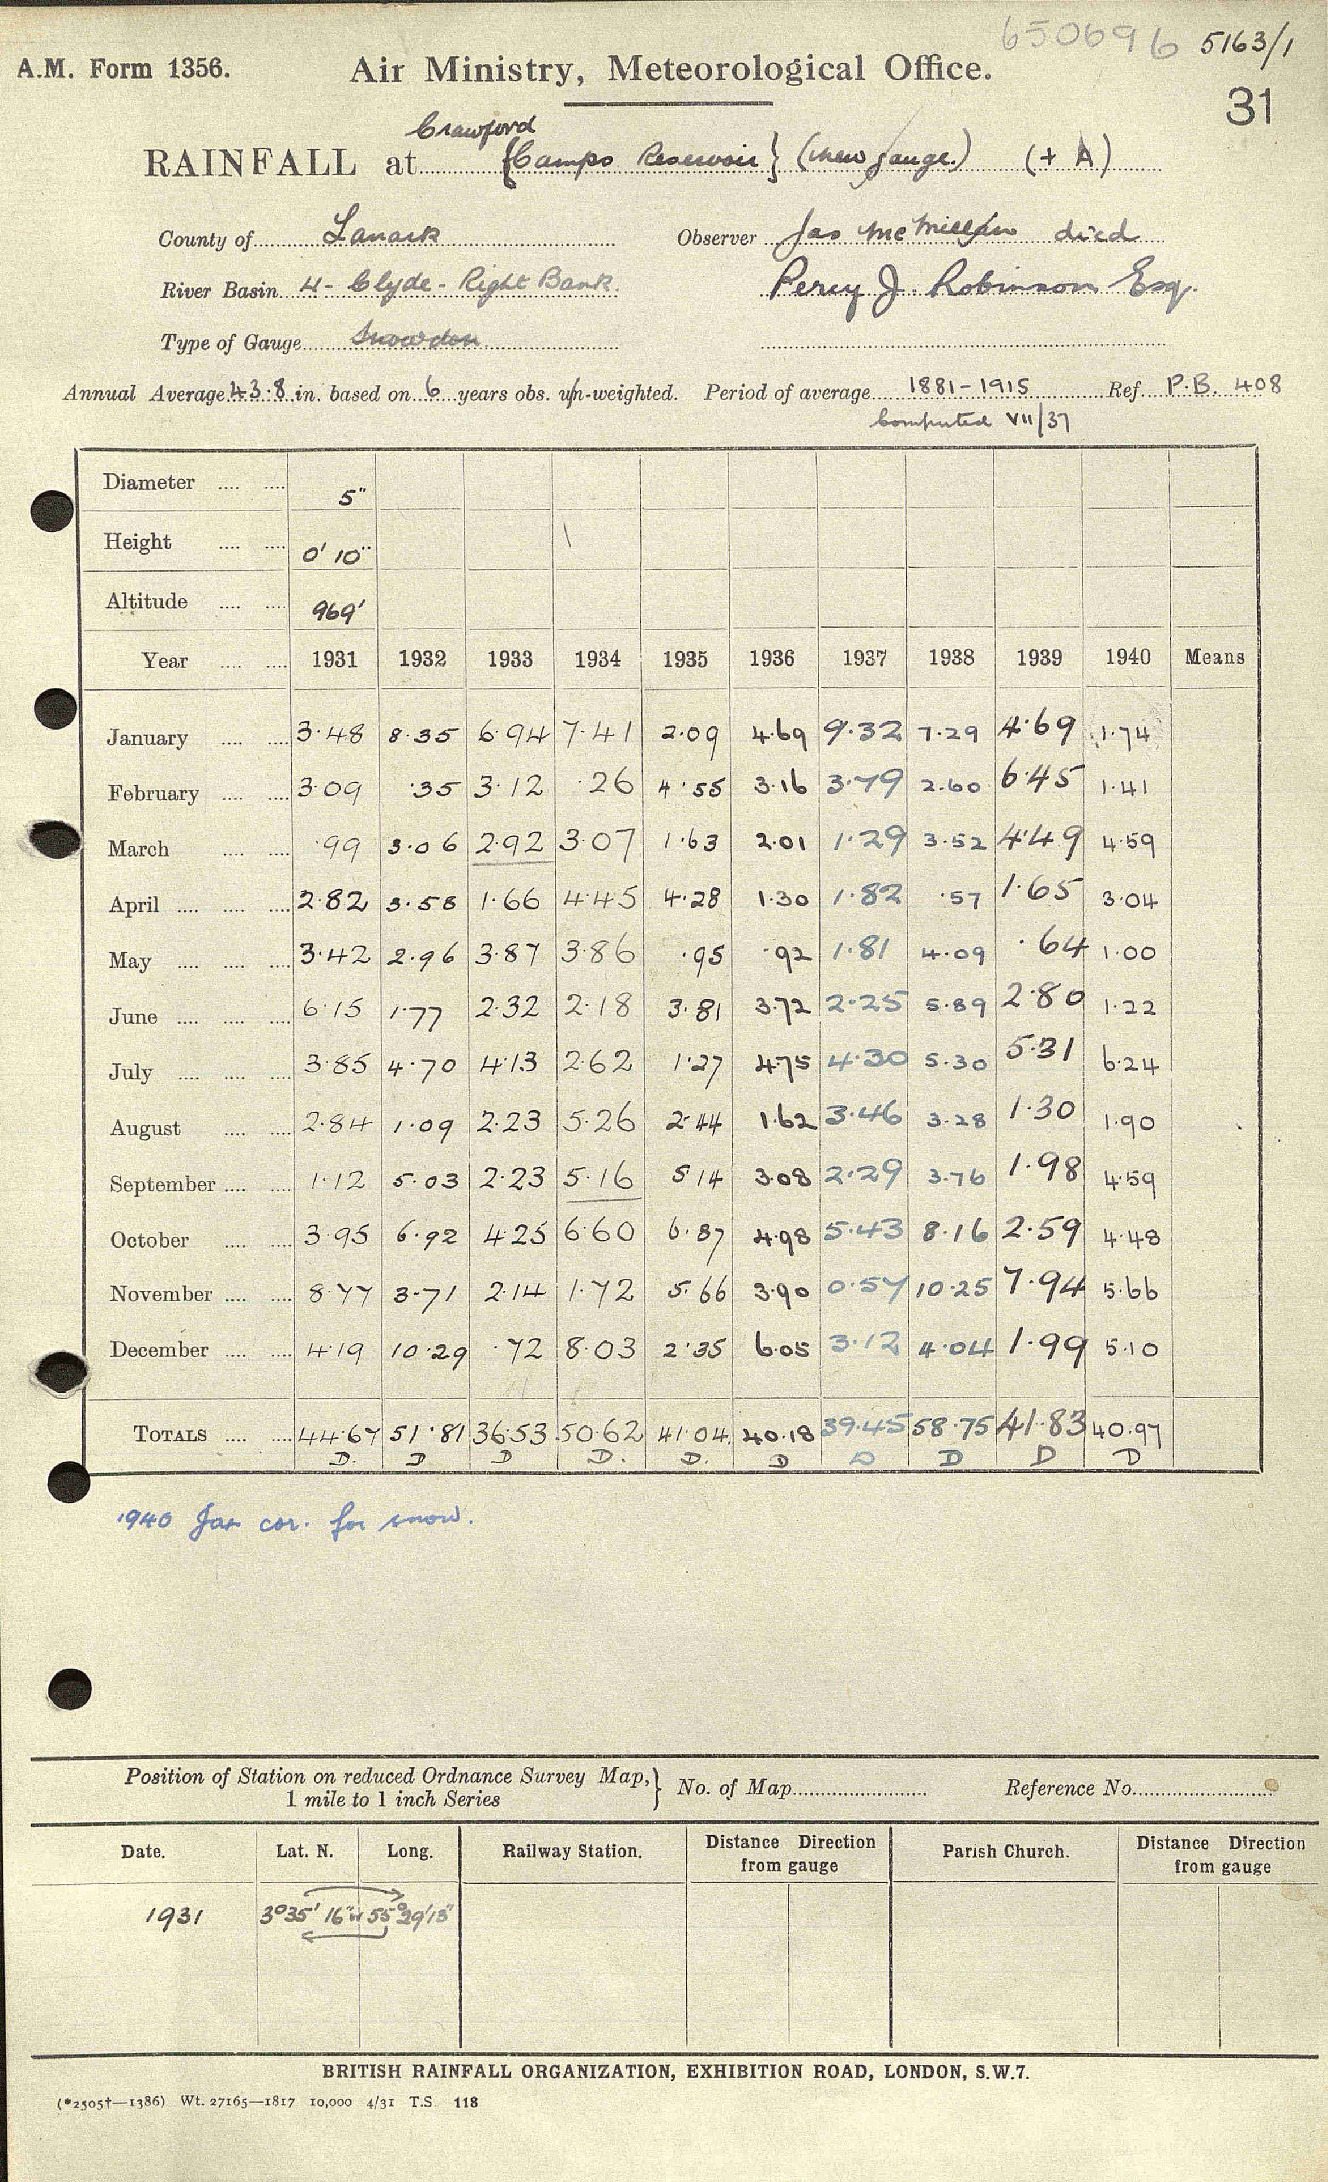 650696 5163/1
A.M. Form 1356. Air Ministry, Meteorological Office.
31
Crawford
RAINFALL at {Camps Reservoir} (new gauge.) (+ A)
County of Lanark Observer Jas McMillan died
River Basin 4- Clyde - Right Bank. Percy J. Robinson Esq.
Type of Gauge Snowdon
Annual Average 43.8 in. based on 6 years obs. un-weighted. Period of average 1881-1915 Ref. P.B. 408
Computed VII/37
Diameter .... .... 5"
Height .... .... 0' 10"
Altitude .... .... 969'
Year .... .... 1931 1932 1933 1934 1935 1936 1937 1938 1939 1940 Means
January .... .... 3.48 8.35 6.94 7.41 2.09 4.69 9.32 7.29 4.69 1.74
February .... .... 3.09 .35 3.12 .26 4.55 3.16 3.79 2.60 6.45 1.41
March .... .... .99 3.06 2.92 3.07 1.63 2.01 1.29 3.52 4.49 4.59
April .... .... .... 2.82 3.58 1.66 4.45 4.28 1.30 1.82 .57 1.65 3.04
May .... .... .... 3.42 2.96 3.87 3.86 .95 .92 1.81 4.09 .64 1.00
June .... .... .... 6.15 1.77 2.32 2.18 3.81 3.72 2.25 5.89 2.80 1.22
July .... .... .... 3.85 4.70 4.13 2.62 1.27 4.75 4.30 5.30 5.31 6.24
August .... .... 2.84 1.09 2.23 5.26 2.44 1.62 3.46 3.28 1.30 1.90
September .... .... 1.12 5.03 2.23 5.16 5.14 3.08 2.29 3.76 1.98 4.59
October .... .... 3.95 6.92 4.25 6.60 6.87 4.98 5.43 8.16 2.59 4.48
November .... .... 8.77 3.71 2.14 1.72 5.66 3.90 0.57 10.25 7.94 5.66
December .... .... 4.19 10.29 .72 8.03 2.35 6.05 3.12 4.04 1.99 5.10
TOTALS .... .... 44.67 51.81 36.53 50.62 41.04 40.18 39.45 58.75 41.83 40.97
D. D D D. D. D D D D D
1940 Jan cor. for snow.
Position of Station on reduced Ordnance Survey Map,} No. of Map Reference No.
1 mile to 1 inch Series
Date. Lat. N. Long. Railway Station. Distance Direction from gauge Parish Church. Distance Direction from gauge
1931 3°35' 16" W 55°29'13"
BRITISH RAINFALL ORGANIZATION, EXHIBITION ROAD, LONDON, S.W.7.
(*2505†—1386) Wt. 27165—1817 10,000 4/31 T.S. 118